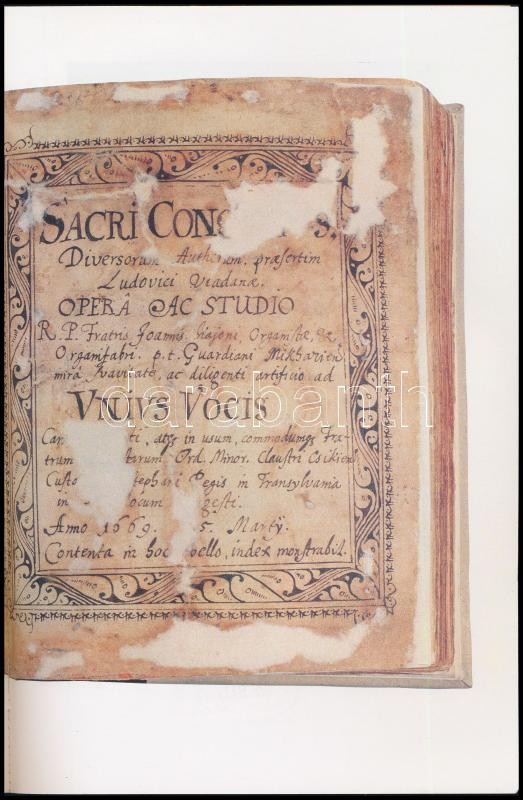 SACRI CONC S.
Diversorum Authorum. præsertim
Ludovici Viadanæ.
OPERÂ AC STUDIO
R. P. Fratris Joannis Kajoni, Organistæ, &
Organifabri. p. t. Guardiani Mikhazien
mirâ suavitate, ac diligenti artificio ad
VNIVS VOCIS
Can ti, atqȝ in usum, commodumqȝ Fra-
trum tarum Ord. Minor. Claustri Csikien
Custo tephani Regis in Transylvania
in ocum gesti.
Anno 1669. 5. Martÿ.
Contenta in hoc bello, index monstrabit.
darabanth